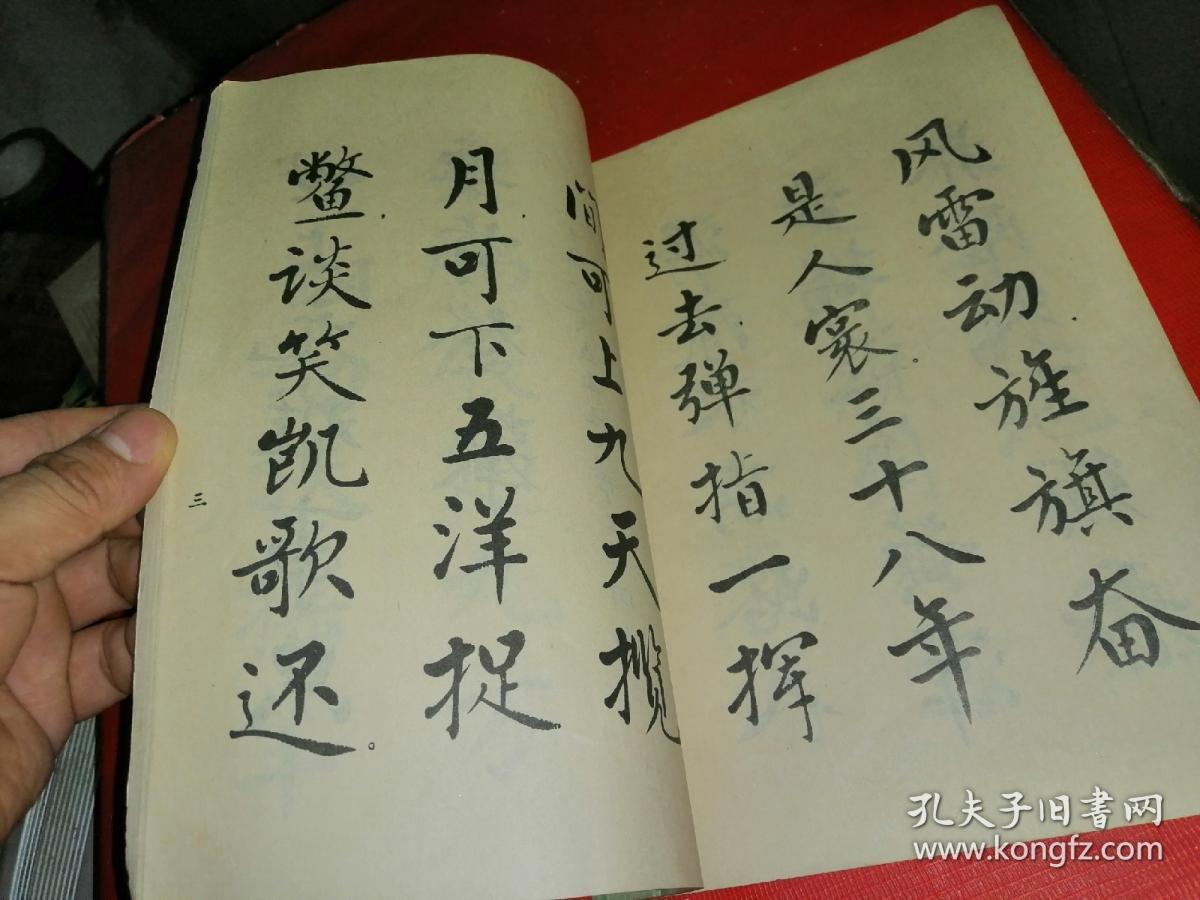 风雷动.旌旗奋
是人寰.三十八年
过去.弹指一挥
间.可上九天揽
月.可下五洋捉
鳖.谈笑凯歌还。
三
孔夫子旧书网
www.kongfz.com